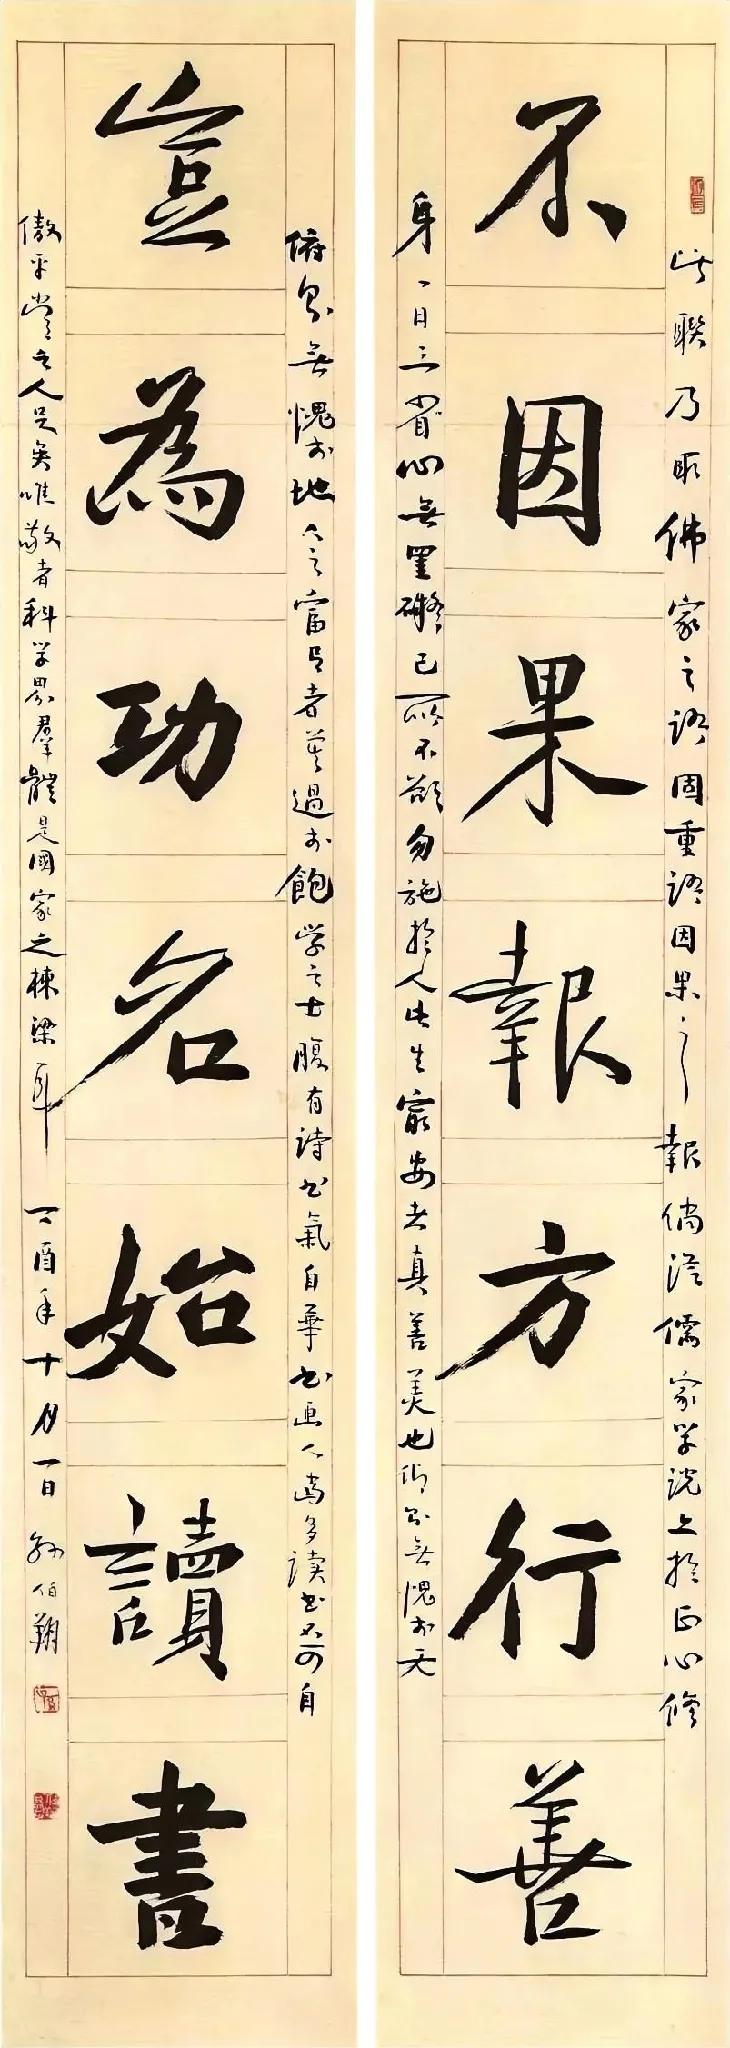 不因果報方行善
此聯乃取佛家之語固重語因果之報倘從儒家學說上於正心修
身一日三省心無罣礙己所不欲勿施於人此生最安者真善美也仰而無愧於天
豈為功名始讀書
俯而無愧於地人之富足者莫過於飽學之士腹有詩書氣自華書画人當多讀書不可自
傲平豈之人足矣唯敬者科学界群體是國家之棟梁耳
丁酉年十月一日孫伯翔